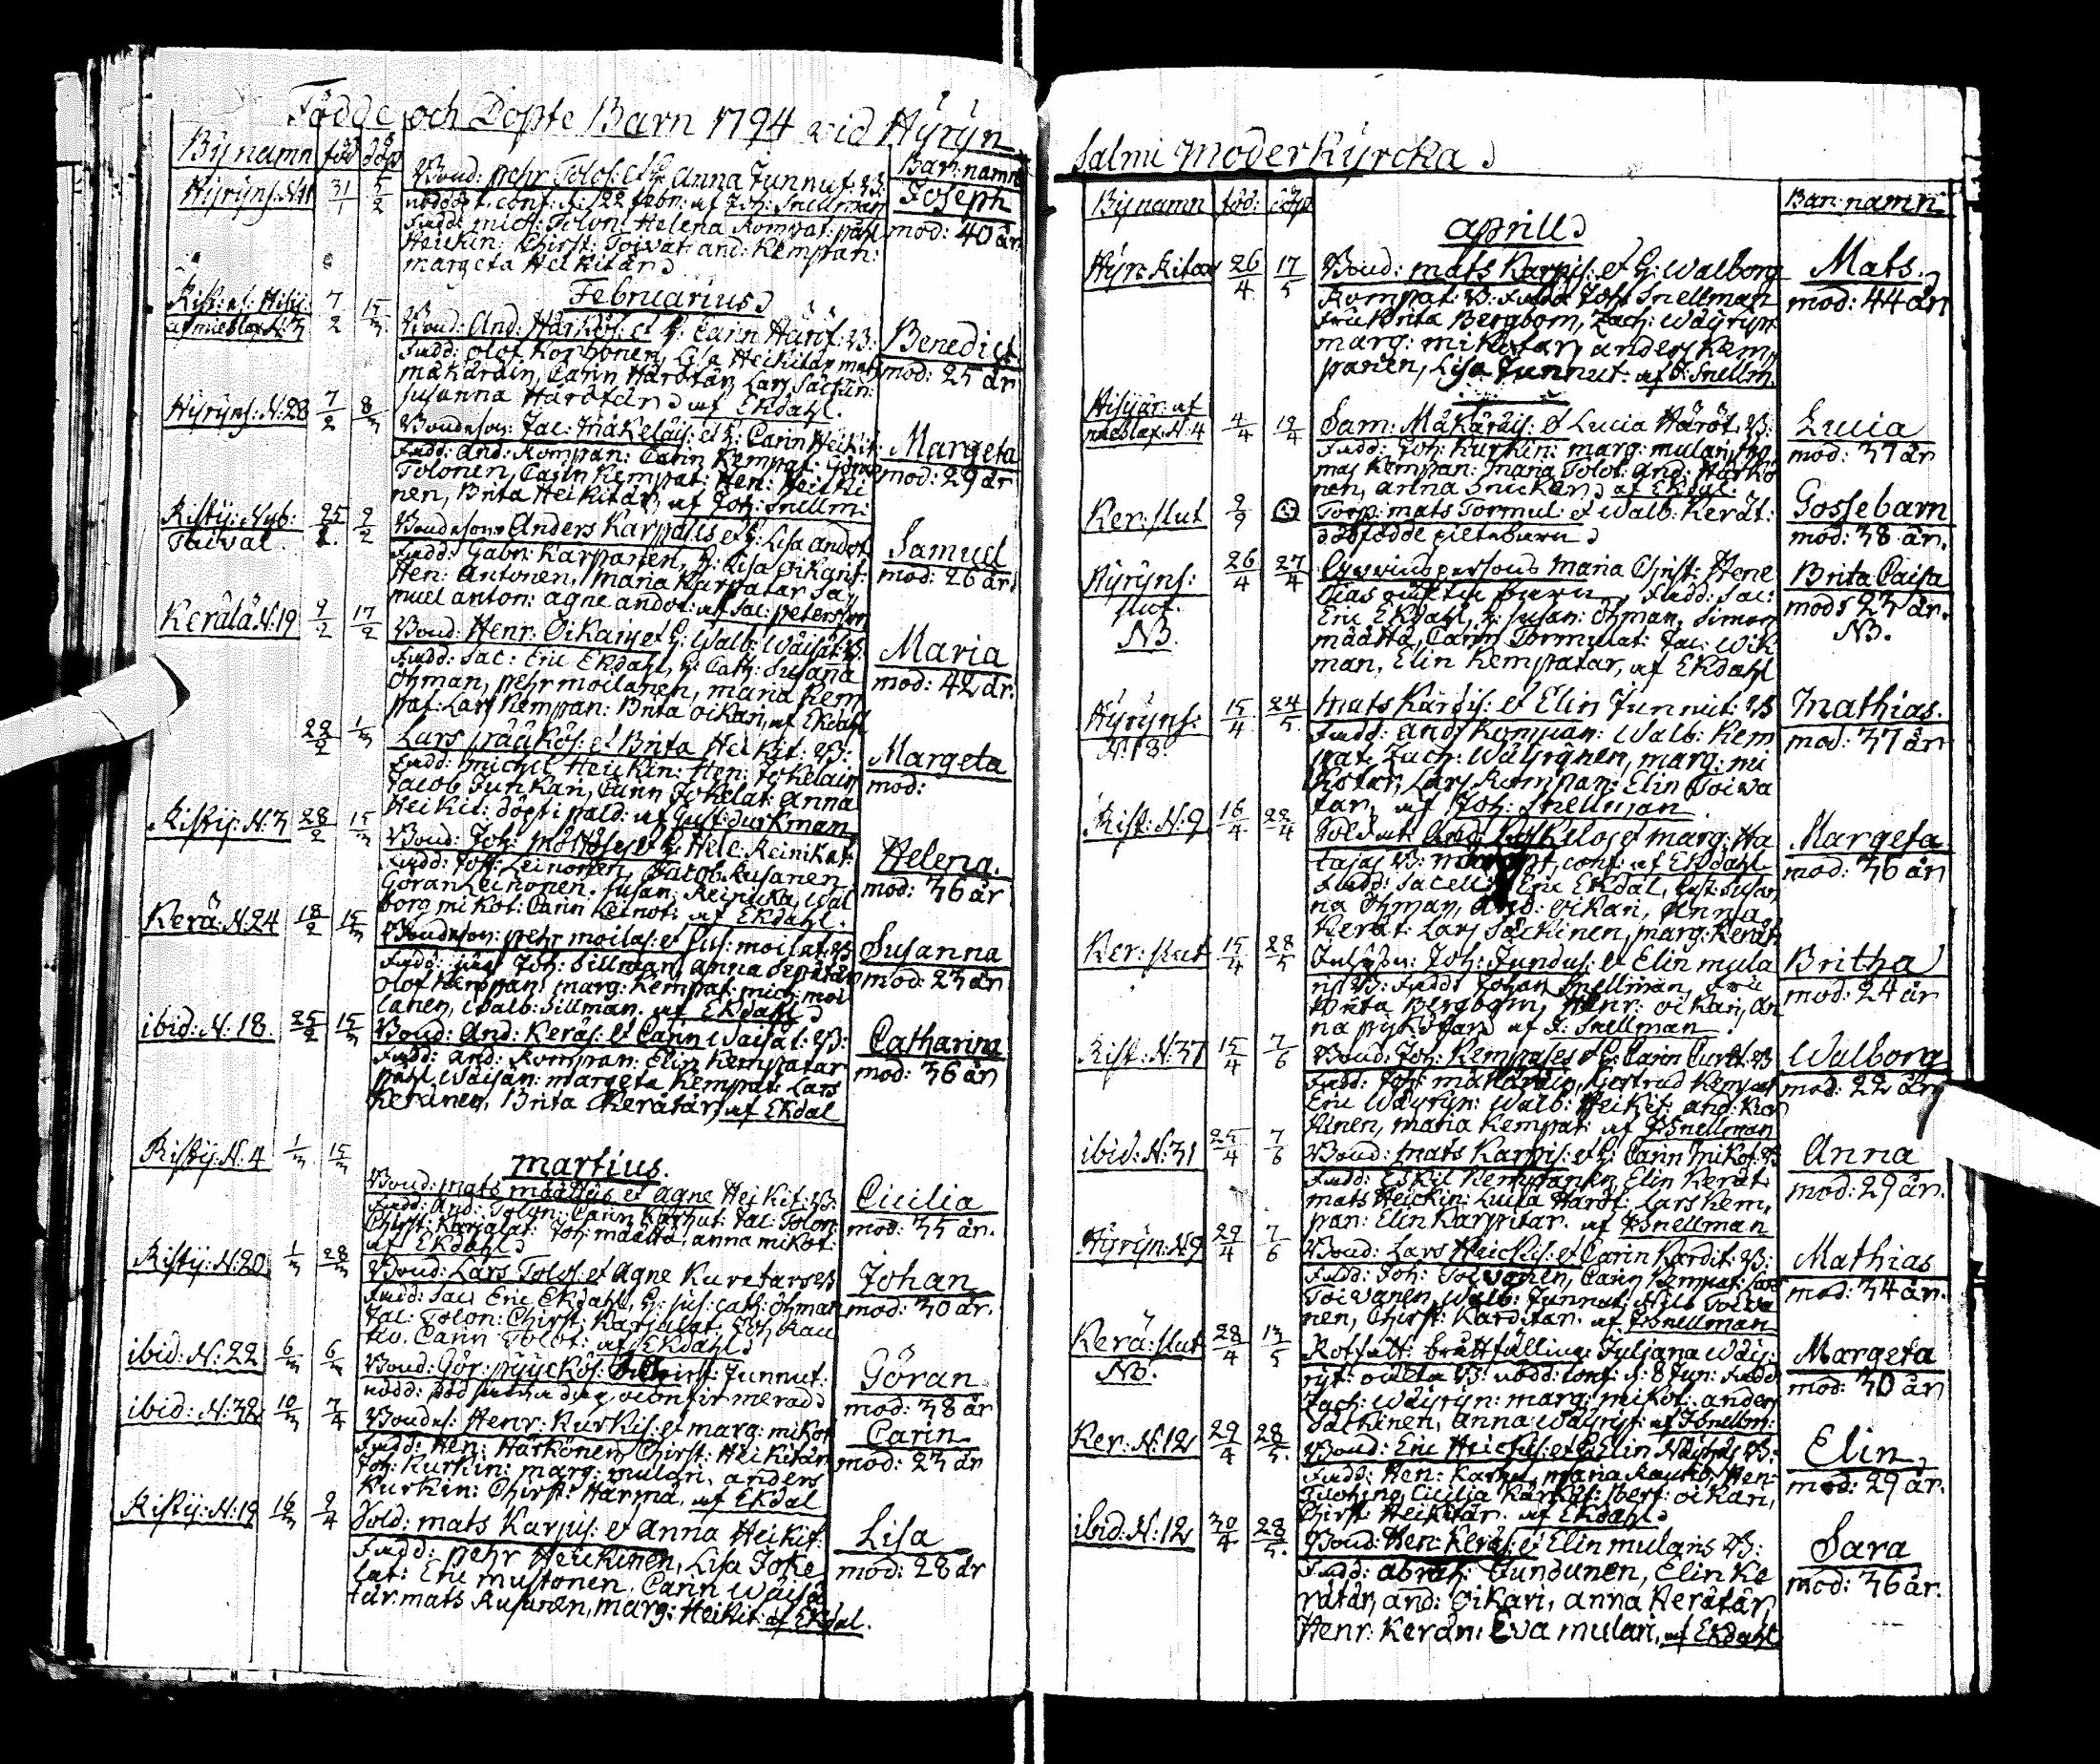 Födde och Döpte Barn 1794 vid Hyryn
Bynamn föd döp
Barn: namn
Hyryns: N:11 31/1 5/2
Bond: pehr Tolos: et H: Anna Junnut: B:
nödd: conf: d: 122 febr: af Joh: Snellman
Fadd: mich: Tolon: Helena Rompat: påhl
Heickin: Christ: Toivat: and: Kempan:
margeta Heikitär
Joseph
mod: 40 år
Februarius
7/2 15/3
Bond: And: Härkös: et H: Carin Häröt: B:
Fadd: olof Korhonen, Lisa Heikitär mats
mäkäräin, Carin Härötär, Lars Säckin:
susanna Härötär af Ekdahl.
Benedict
mod: 25 år
Hyryns: N:28 7/2 8/3
Bondeson: Jac: Mäkeläis: et H: Carin Heikit:
Fadd: And: Rompan: Carin Kempat: Göran
Tolonen, Carin Kempat: Hen: Heicki
nen, Brita Heikitär, af Joh: Snellm:
Margeta
mod: 29 år
Ristij: Nyb: 25/1 9/2
Taival
Bondeson Anders Karpalis et H: Lisa andot
Fadd: Gabr: Karpanen, H: Lisa oikarit:
Hen: Antonen, maria Karpatar Sa
muel anton: agne andot: af Sac: peterson
Samuel
mod: 26 år
Kerälä N:19 9/2 17/2
Bond: Henr: Oikaris et H: Walb: Wäisät: B:
Fadd: Sac: Eric Ekdahl, H: Cath: Susana
öhman, pehr moilanen, maria Kem
pat: Lars Kempan: Brita oikari, af Ekdahl
Maria
mod: 42 år.
22/2 1/3
Lars pääkös: et Brita Heikit: B:
Fadd: michel Heickin: Hen: Jokelain
Jacob Junkari, Carin Jokelat: Anna
Heikit: döpt i pald: af Gust: durkman
Margeta
mod:
Ristij: N:3 28/2 15/3
Bond: Joh: et H: Hele: Reinikat:
Fadd: Joh: Leinonen, Jacob Rusanen
Göran Leinonen. susan: Reinicka, Wal
borg mikot: Carin Leinot: af Ekdahl.
Helena.
mod: 36 år
Kerä: N:24 18/2 15/3
Bondeson: pehr moilas: et Sus: moilat: B
Fadd: Joh: Sillman, anna Sepätär
Olof Kempan: marg: Kempat: mich: moi
lanen, Walb: Sillman. af Ekdahl
Susanna
mod: 23 år
ibid: N:18. 25/2 15/3
Bond: And: Keräs: et Carin Waisät: B:
Fadd: And: Rompan: Elin Kempatar
påhl Wäisän: margeta Kempat: Lars
Keränen, Brita Kerätär, af Ekdal
Catharina
mod: 36 år
martius.
Ristij: N:4 1/3 15/3
Bond: mats määttäis et agne Heikit: B:
Fadd: And: Tolon: Carin Karhut: Jac: Tolon:
Christ: Karjalat: Joh: määttä, anna mikot:
af Ekdahl
Cicilia
mod: 35 år.
Ristij: N:20 1/3 28/3
Bond: Lars Tolos: et agne Kuretars B
Fadd: Sac: Eric Ekdahl, H: sus: cath: öhman
Jac: Tolon: Christ: Karjalat: Joh: Rau
tio. Carin Tolot: af Ekdahl
Johan
mod: 30 år.
ibid: N:22 6/3 6/3
Bond: Gör: pyyckös: Christ: Junnut:
Göran
mod: 38 år
ibid: N:32 10/3 7/4
Bondes: Henr: Kurkis: et marg: mikot
Fadd: Hen: Härkönen, Christ: Heikitär
Joh: Kurkin: marg: mulari. anders
Kurkin: Christ: Härmä, af Ekdal
Carin
mod: 23 år
Ristij: N:19 16/3 9/4
Sold: mats Karpis: et Anna Heikit
Fadd: pehr Heickinen, Lisa Joke
lat: Eric mustonen, Carin Wäisä
tär: mats Rusanen, marg: Heikit: af Ekdal.
Lisa
mod: 28 år
Salmi Moderkyrcka
Bynamn föd: döp
Barn: namn
Aprill
26/4 17/5
Bond: mats Karpis: et H: Walborg
Rompat: B: Fadd: Joh: Snellman
fru Brita Bergbom, Zach: Wäyryn
marg: mikotar, anders Kem
panen, Lisa Junnut: af J: Snellm.
Mats.
mod: 44 år
N:4 4/4 19/4
Sam: Mäkäräis: et Lucia Häröt: B:
Fadd: Joh: Kurkin: marg: mulari, tho
mas Kempan: maria Tolot: and: Härkö
nen, anna Snicker af Ekdal.
Lucia
mod: 37 år
Ker: slut 9/9
Torp: mats Tormul: et Walb: Kerät:
dödfödde
Gossebarn
mod: 38 år.
Hyryns: 26/4 27/4
slut.
NB.
maria Christ: Hene
Fadd: Sac:
Eric Ekdahl, H: susan: öhman, simon
määttä, Carin Tormulat: Jac: Wik
man, Elin Kempatar, af Ekdahl
Brita Caisa
mod: 23 år.
NB.
Hyryns: 15/4 24/5
N:18.
Mats Kärdis: et Elin Junnut: B
Fadd: and: Kompan: Walb: Kem
pat: Zach: Wäyrynen, marg: mi
kotar, Lars Rompan: Elin Toiva
tar, af Joh: Snellman
Mathias.
mod: 37 år
Rist: N:9 16/4 22/4
Soldat: marg: Ha
conf: af Ekdahl
Fadd: Sacell: Eric Ekdal, Cath: Susan
na öhman, And: oikari, Anna
Kerät: Lars Säckinen, marg: Kerät
Margeta
mod: 36 år
Ker: slut 15/4 28/5
Joh: Jundus: et Elin mula
ris B: Fadd: Johan Snellman, fru
Brita Bergbom, Henr: oikari, An
na pykötar af J: Snellman
Britha
mod: 24 år
Rist: N:37 15/4 7/6
Bond: Joh: Kempases et H: Carin Curet: B
Fadd: Joh: mäkäräin, Gertrud Kempat
Eric Wäyryn: Walb: Heikit: and: Kor
honen, maria Kempat: af J: Snellman
Walborg
mod: 22 år
ibid: N:31 25/4 7/6
Bond: mats Karpis: et H: Carin Mikot: B
Fadd: Eskil Kempanen, Elin Kerät:
mats Heickin: Lucia Häröt: Lars Kem,
pan: Elin Karpitar. af J: Snellman
Anna
mod: 29 år.
Hyryn: N:9 29/4 7/6
Bond: Lars Heickis: et Carin Kärdit: B:
Fadd: Joh: Toivanen, Carin Kempat:
Toivanen, Walb: Junnut: Nils Toiva
nen, Christ: Kärditär. af J: Snellman
Mathias
mod: 34 år.
Kerä: slut 28/4 13/5
NB.
Juljana Wäy:
ryt: d: 8 Jun: Fadd
Zach: Wäyryn: marg: mikot: anders
Säckinen, Anna Wäyryt: af J: Snellm:
Margeta
mod: 30 år
Ker: N:12 29/4 28/5.
Bond: Eric Heickis: et H: Elin B:
Fadd: Hen: Karhu, maria Rautio, Hen:
Tuohino, Cicilia Kärkät: Bert: oikari,
Christ: Heikitär. af Ekdahl
Elin
mod: 29 år.
ibid: N:12 30/4 28/5.
Bond: Hen: Keräs: et Elin mularis B:
Fadd: abrah: Jundunen, Elin Ke
rätär, and: Oikari, anna Kerätär,
Henr: Kerän: Eva mulari, af Ekdahl
Sara
mod: 36 år.